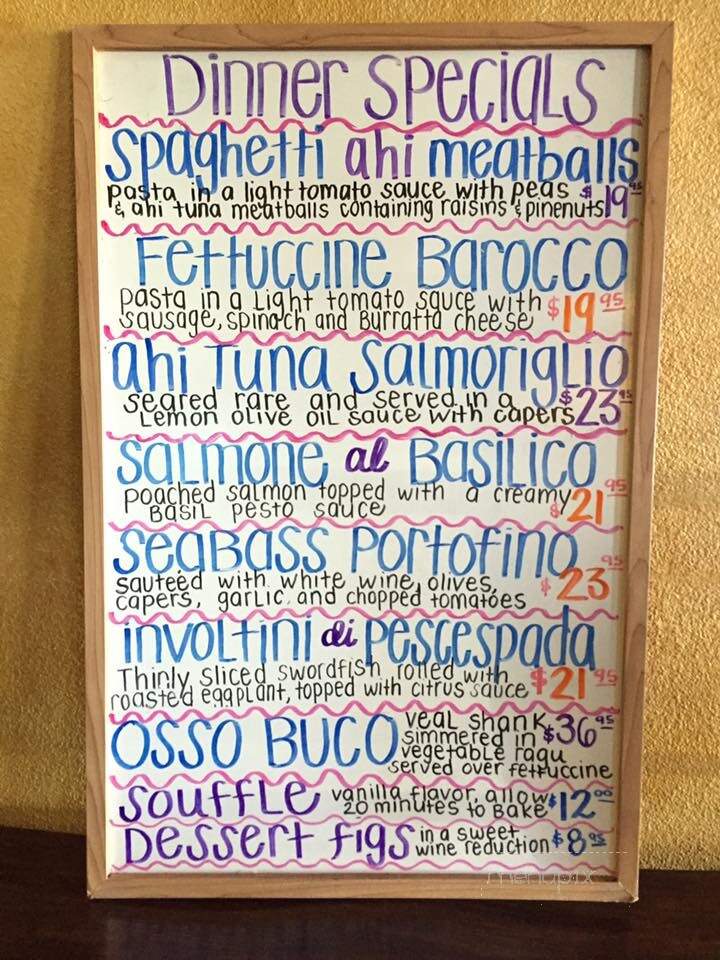 Dinner Specials
Spaghetti ahi meatballs
pasta in a light tomato sauce with peas $19.95
& ahi tuna meatballs containing raisins & pinenuts
Fettuccine Barocco
pasta in a light tomato sauce with $19.95
sausage, spinach and Burratta cheese
ahi Tuna Salmoriglio
seared rare and served in a $23.95
Lemon olive oil sauce with capers
Salmone al Basilico
poached salmon topped with a creamy $21.95
Basil pesto sauce
SeaBass Portofino
sautéed with white wine, olives, $23.95
capers, garlic and chopped tomatoes
involtini di pescespada
Thinly sliced swordfish rolled with $21.95
roasted eggplant, topped with citrus sauce
OSSO BUCO veal shank $36.95
simmered in
vegetable ragu
served over fettuccine
Souffle vanilla flavor, allow $12.00
20 minutes to Bake
Dessert figs in a sweet $8.95
wine reduction
menupix